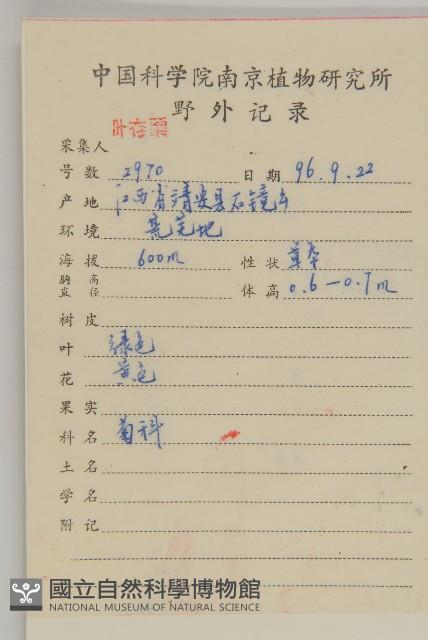 中国科学院南京植物研究所
野外记录
叶存粟
采集人
号数 2970 日期 96.9.22
产地 江西省靖安县石镜乡
环境 荒芜地
海拔 600m 性状 草本
胸高直径 体高 0.6—0.7m
树皮
叶 绿色
花 黄色
果实
科名 菊科
土名
学名
附记
國立自然科學博物館
NATIONAL MUSEUM OF NATURAL SCIENCE